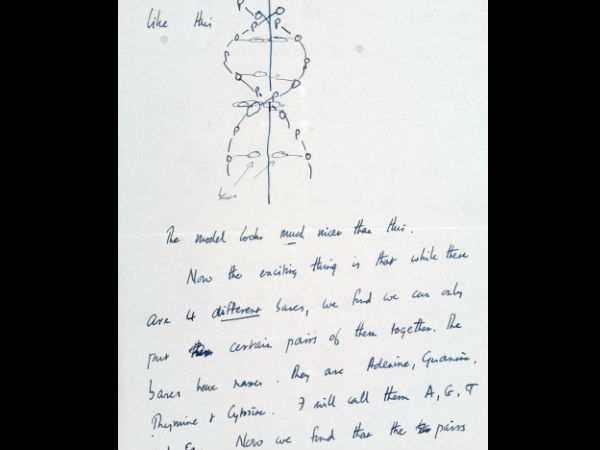 like this
P
P
P
P
P
P
P
P
bases
The model looks much nicer than this.
Now the exciting thing is that while there
are 4 different bases, we find we can only
put certain pairs of them together. The
bases have names. They are Adenine, Guanine,
Thymine & Cytosine. I will call them A, G, T
Now we find that the pairs